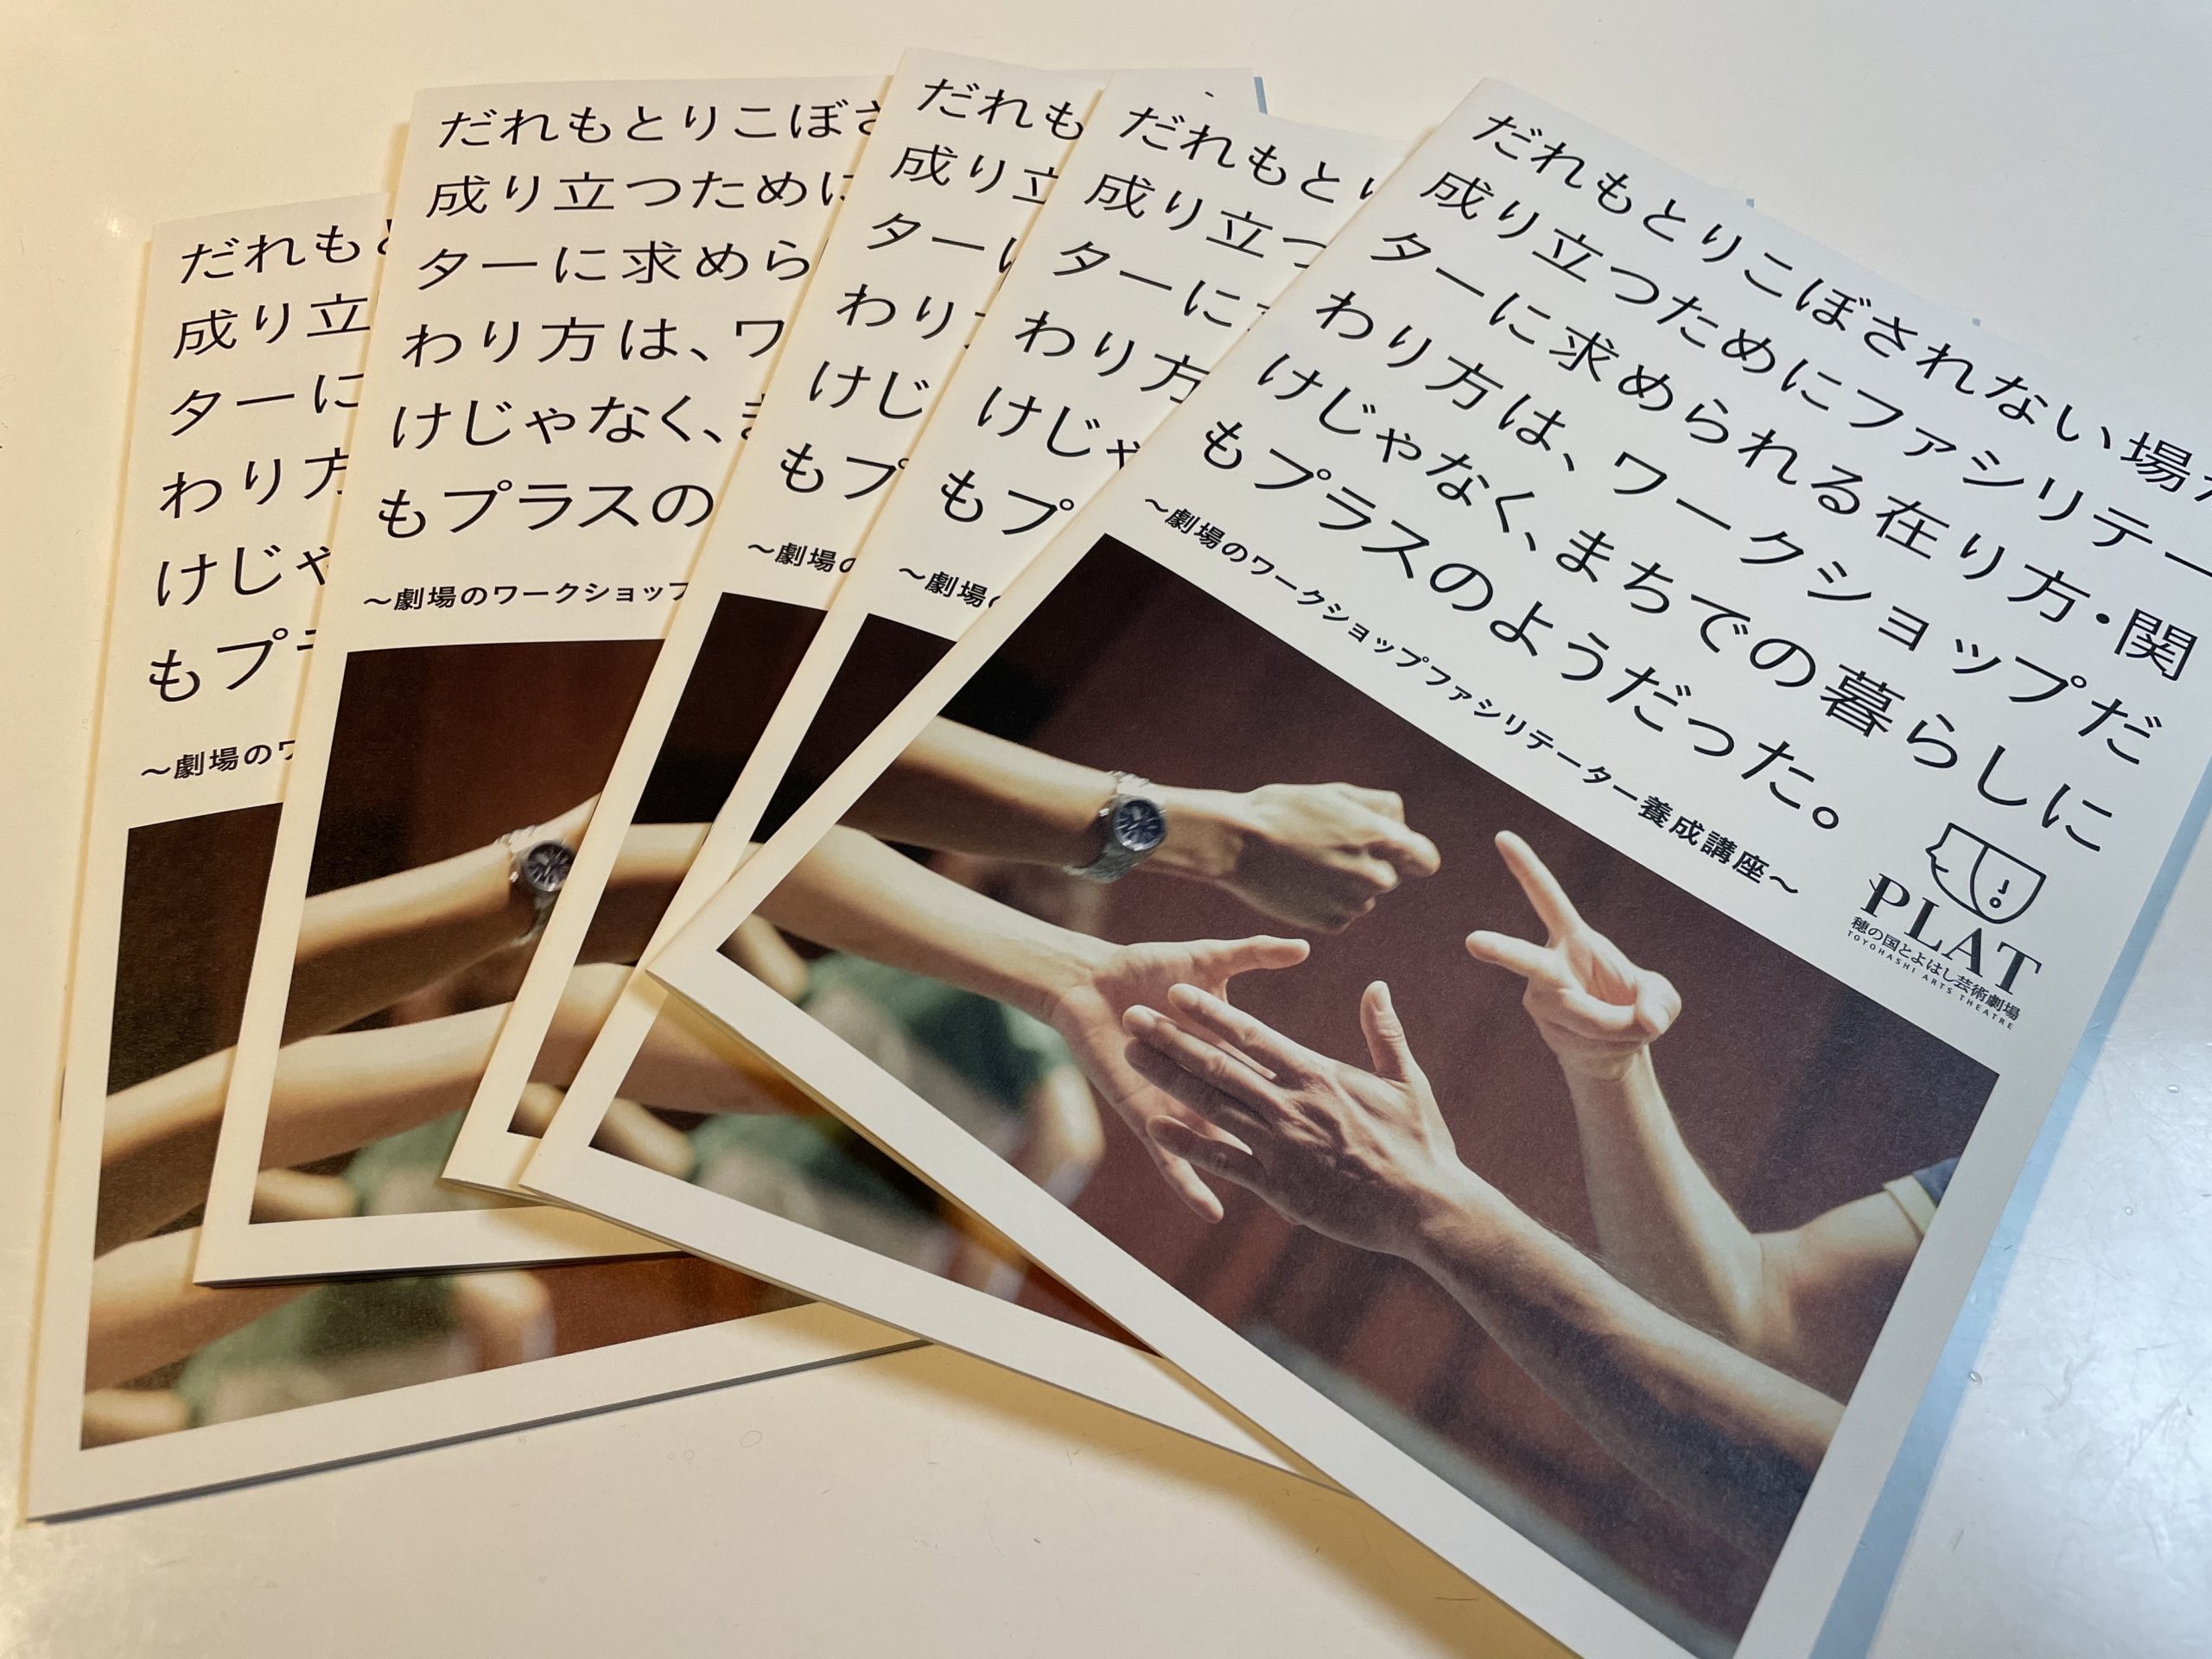 だれもと
成り立
ターに
わり方
けじゃ
もプラ
〜劇場のワ
だれもとりこぼさ
成り立つために
ターに求めら
わり方は、ワ
けじゃなく、ま
もプラスの
〜劇場のワークショップ
だれも
成り立
ターに
わり
けじ
もプ
〜劇場の
だれもとり
成り立つ
ターに
わり方
けじゃ
もプ
〜劇場の
だれもとりこぼされない場が
成り立つためにファシリテー
ターに求められる在り方・関
わり方は、ワークショップだ
けじゃなく、まちでの暮らしに
もプラスのようだった。
〜劇場のワークショップファシリテーター養成講座〜
PLAT
穂の国とよはし芸術劇場
TOYOHASHI ARTS THEATRE